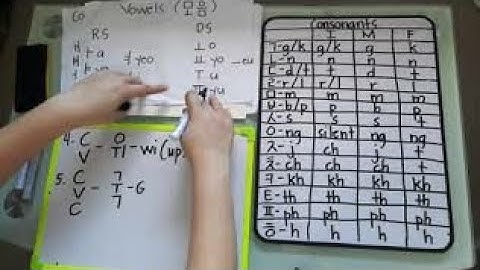 Co
Vowels (모음)
RS DS
ㅏ a ㅕ yeo ㅗ o
ㅛ yo ㅡ eu
ㅜ u
ㅠ yu
4. C ㅇ
V ㅟ - wi (up
5. C ㄱ
V - ㅜ - G
C ㄱ
Consonants
I M F
ㄱ-g/k g/k g k
ㄴ-n n n n
ㄷ-d/t d d t
ㄹ-r/l r/l r l
ㅁ-m m m m
ㅂ-b/p b/p b p
ㅅ-s s s t
ㅇ-ng silent ng ng
ㅈ-j ch j t
ㅊ-ch ch ch t
ㅋ-kh kh kh kh
ㅌ-th th th th
ㅍ-ph ph ph ph
ㅎ-h h h h